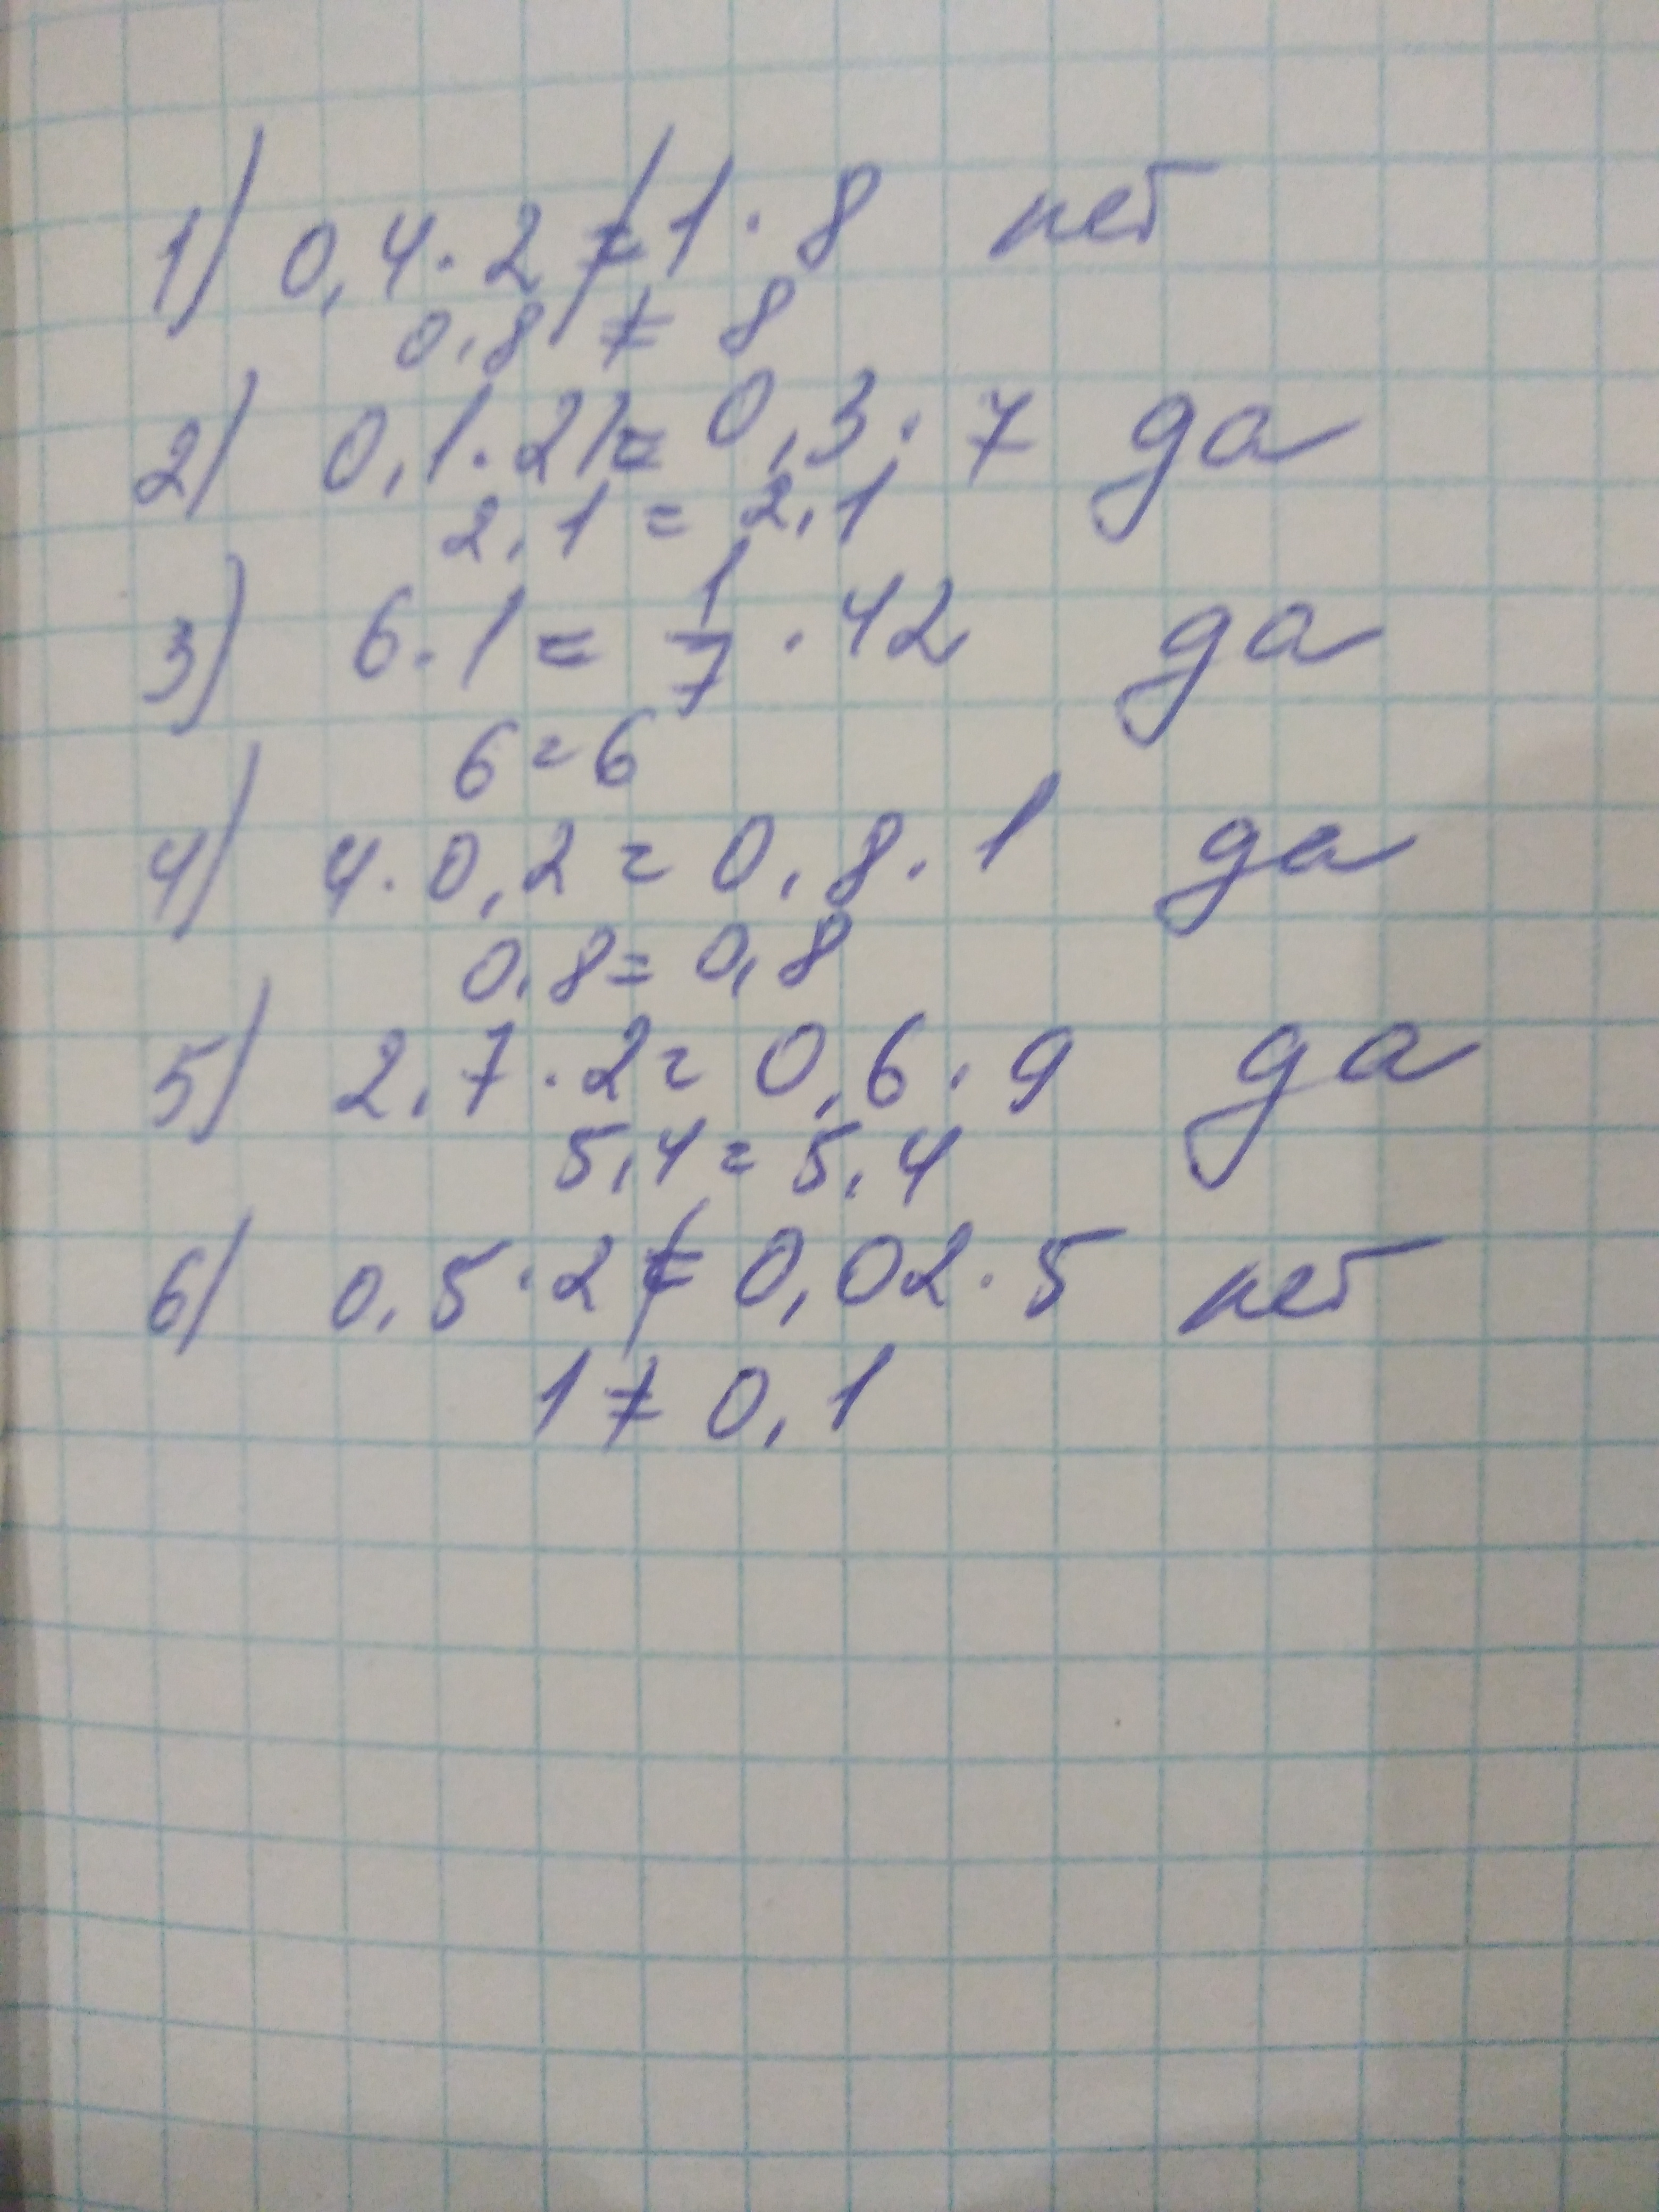 1) 0,4 · 2 ≠ 1 · 8 нет
0,8 ≠ 8
2) 0,1 · 21 = 0,3 · 7 да
2,1 = 2,1
3) 6 · 1 = 1/7 · 42 да
6 = 6
4) 4 · 0,2 = 0,8 · 1 да
0,8 = 0,8
5) 2,7 · 2 = 0,6 · 9 да
5,4 = 5,4
6) 0,5 · 2 ≠ 0,02 · 5 нет
1 ≠ 0,1